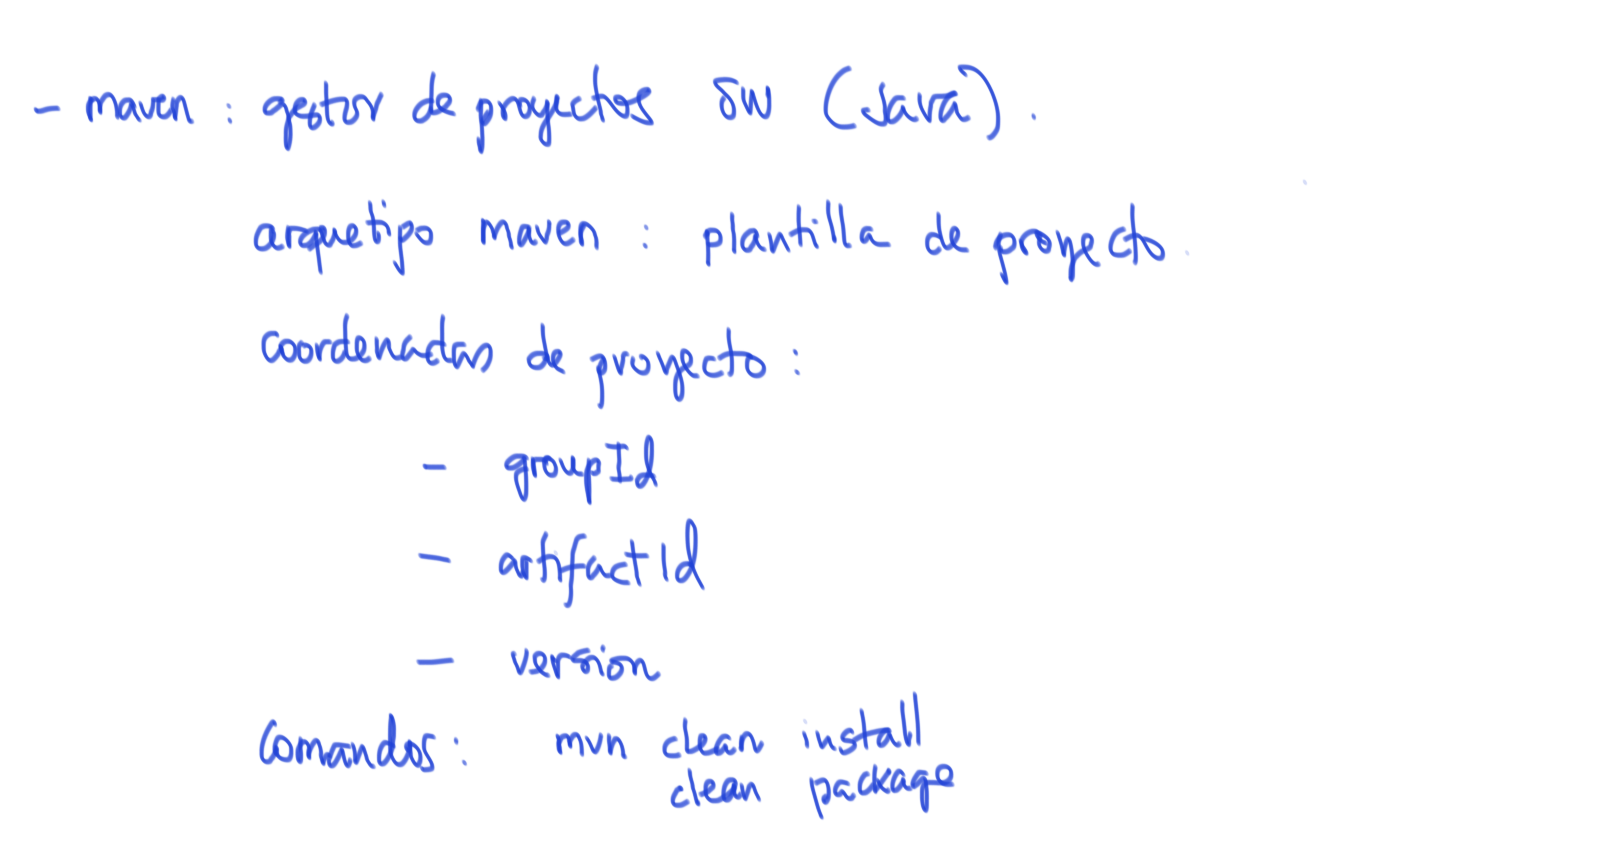 - maven : gestor de proyectos SW (Java).
arquetipo maven : plantilla de proyecto.
coordenadas de proyecto :
- groupId
- artifactId
- version
Comandos : mvn clean install
clean package